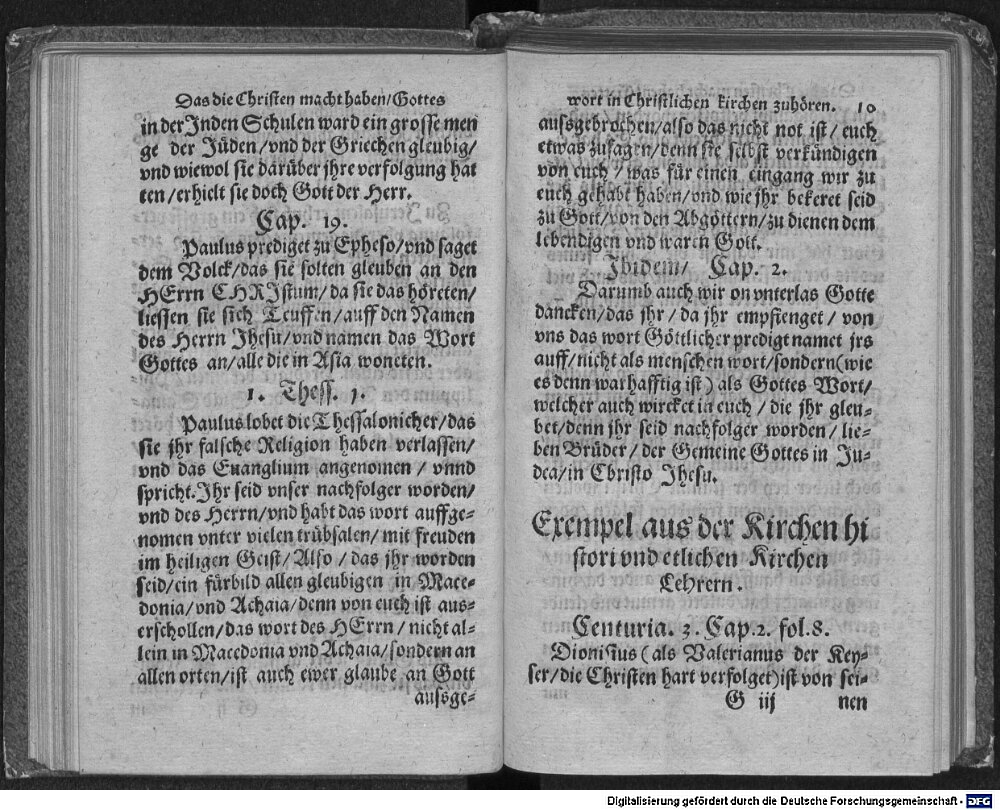 Das die Christen macht haben/Gottes
in der Jnden Schulen ward ein grosse men
ge der Jüden/vnd der Griechen gleubig/
vnd wiewol sie darüber jhre verfolgung hat
ten/erhielt sie doch Gott der Herr.
Cap. 19.
Paulus prediget zu Epheso/vnd saget
dem Volck/das sie solten gleuben an den
HErrn CHRJstum/da sie das höreten/
liessen sie sich Teuffen/auff den Namen
des Herrn Jhesu/vnd namen das Wort
Gottes an/alle die in Asia woneten.
1. Thess. 1.
Paulus lobet die Thessalonicher/das
sie jhr falsche Religion haben verlassen/
vnd das Euanglium angenomen / vnnd
spricht. Jhr seid vnser nachfolger worden/
vnd des Herrn/vnd habt das wort auffge-
nomen vnter vielen trübsalen/mit freuden
im heiligen Geist/Also / das jhr worden
seid/ein fürbild allen gleubigen in Mace-
donia/vnd Achaia/denn von euch ist aus-
erschollen/das wort des HErrn / nicht al-
lein in Macedonia vnd Achaia/sondern an
allen orten/ist auch ewer glaube an Gott
ausge-
wort in Christlichen kirchen zuhören. 10
ausgebrochen/also das nicht not ist/ euch
etwas zusagen/denn sie selbst verkündigen
von euch / was für einen eingang wir zu
euch gehabt haben/vnd wie jhr bekeret seid
zu Gott/von den Abgöttern/zu dienen dem
lebendigen vnd waren Gott.
Jbidem/ Cap. 2.
Darumb auch wir on vnterlas Gotte
dancken/das jhr / da jhr empfienget / von
vns das wort Göttlicher predigt namet jrs
auff/nicht als menschen wort/sondern (wie
es denn warhafftig ist) als Gottes Wort/
welcher auch wircket in euch / die jhr gleu-
bet/denn jhr seid nachfolger worden/ lie-
ben Brüder/ der Gemeine Gottes in Ju-
dea/in Christo Jhesu.
Exempel aus der Kirchen hi
stori vnd etlichen Kirchen
Lehrern.
Centuria. 3. Cap. 2. fol. 8.
Dionisius (als Valerianus der Key-
ser/die Christen hart verfolget) ist von sei-
G iij nen
Digitalisierung gefördert durch die Deutsche Forschungsgemeinschaft - DFG